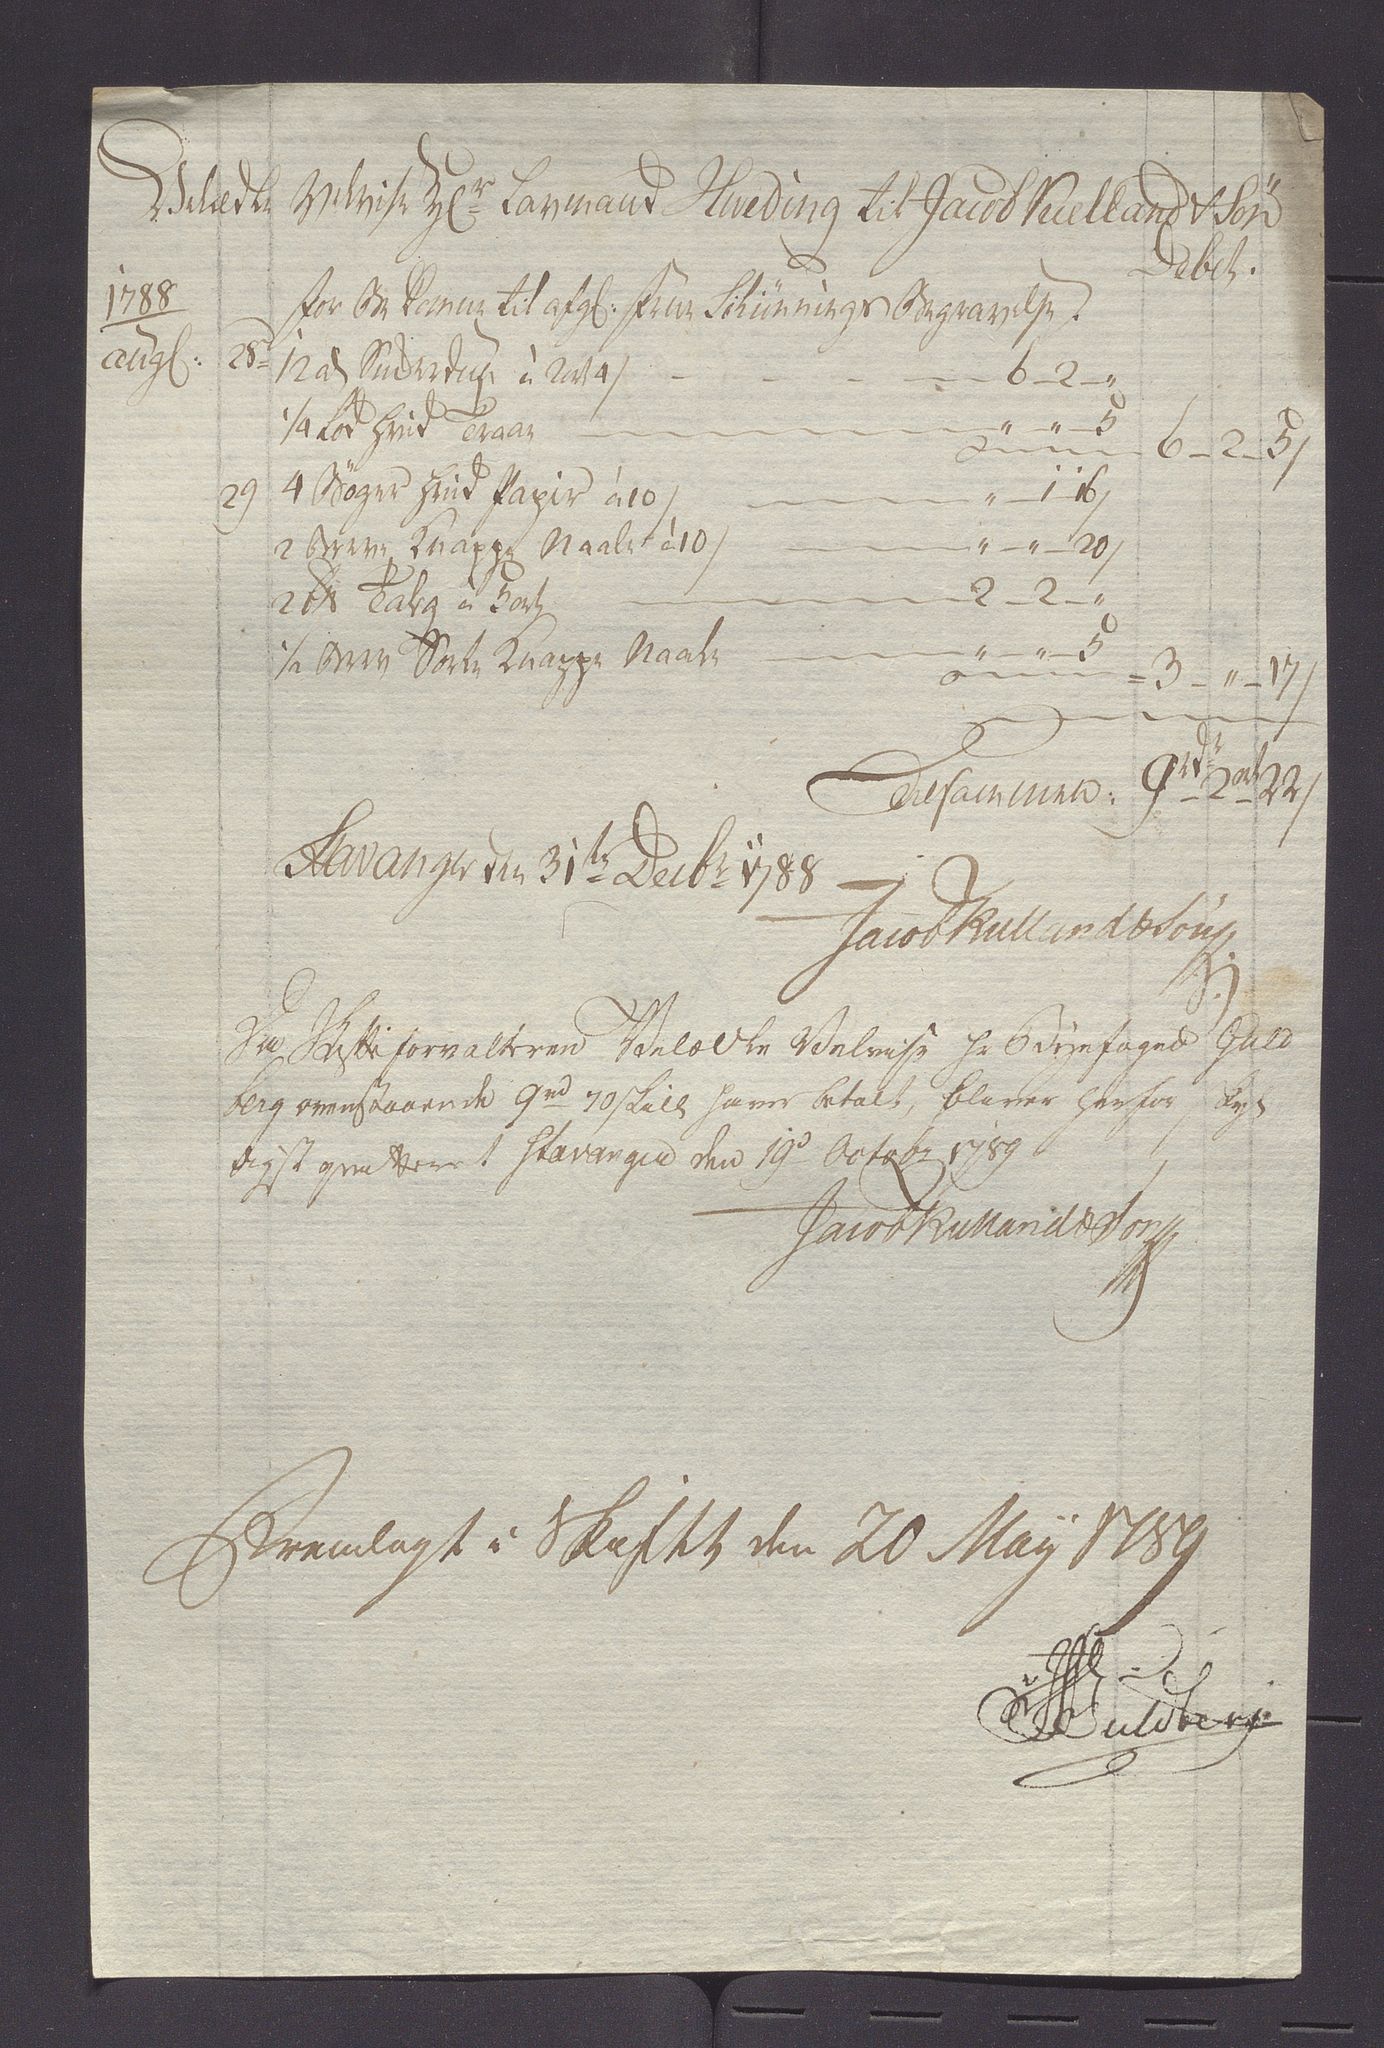 Velædle Velvise Hr Lavmand Hveding til Jacob Kielland & Sön
Debet.
1788
for Bekomne til afgl: frue Schiönnings Begravelse.
augl: 28 12 al à 2 ort 4/ 6 - 2 - "
1/4 Lod hvid Traae " " 5 6 - 2 - 5/
29 4 Böger hvid Papir à 10/ " 1 16/
2 Breve Knappe Naale à 10/ " - " - 20/
2 Talg à 5 ort 2 - 2 - "
1/2 Brev Sorte Knappe Naale " " 5
3 - " - 17/
Tilsammen: 9 rd 2 ort 22/
Stavanger den 31te Decbr 1788
Jacob Kielland & Sön
Skifteforvalteren Velædle Velvise Hr Byefoged Guld
berg ovenstaaende 9 rd 70 skill haver betalt, bliver herfor
qvitteret Stavanger den 19d October 1789
Jacob Kielland & Søn
Fremlagt i Skiftet den 20 May 1789
Guldberg